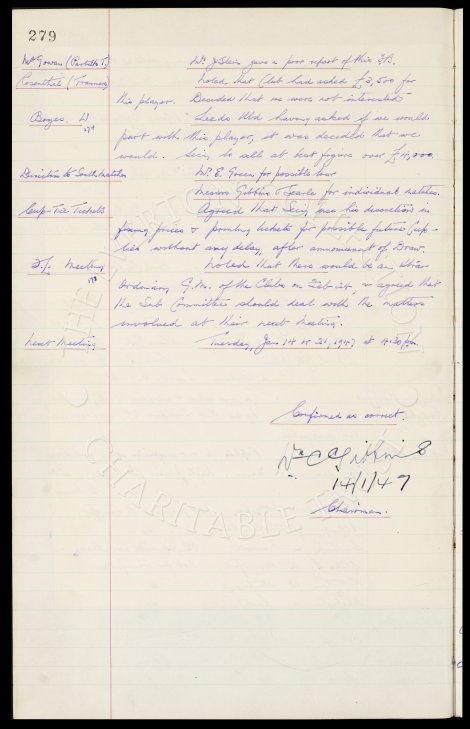 279
McGowan (Partick T.) Mr. J. Stein gave a poor report of this F.B.
Rosenthal (Tranmere) Noted that Club had asked £3,500 for
this player. Decided that we were not interested
Boyes. W Leeds Utd having asked if we would
279
part with this player, it was decided that we
would. Secy. to sell at best figure over £4,000.
Directors to South matches Mr. E. Green for possible tour
Messrs Gibbins & Searle for individual matches.
Cup-Tie Tickets Agreed that Secy. use his discretion in
fixing prices & printing tickets for possible future Cup-
ties without any delay, after announcement of Draw.
F.L. Meeting Noted that there would be an Extra-
278
ordinary G.M. of the Clubs on Feb 24, & agreed that
the Sub Committee should deal with the matters
involved at their next meeting.
Next Meeting Tuesday, Jan 14 or 21, 1947 at 4:30 p.m.
Confirmed as correct.
Wm C Gibbins
14/1/47
Chairman.
THE EVERTON
CHARITABLE